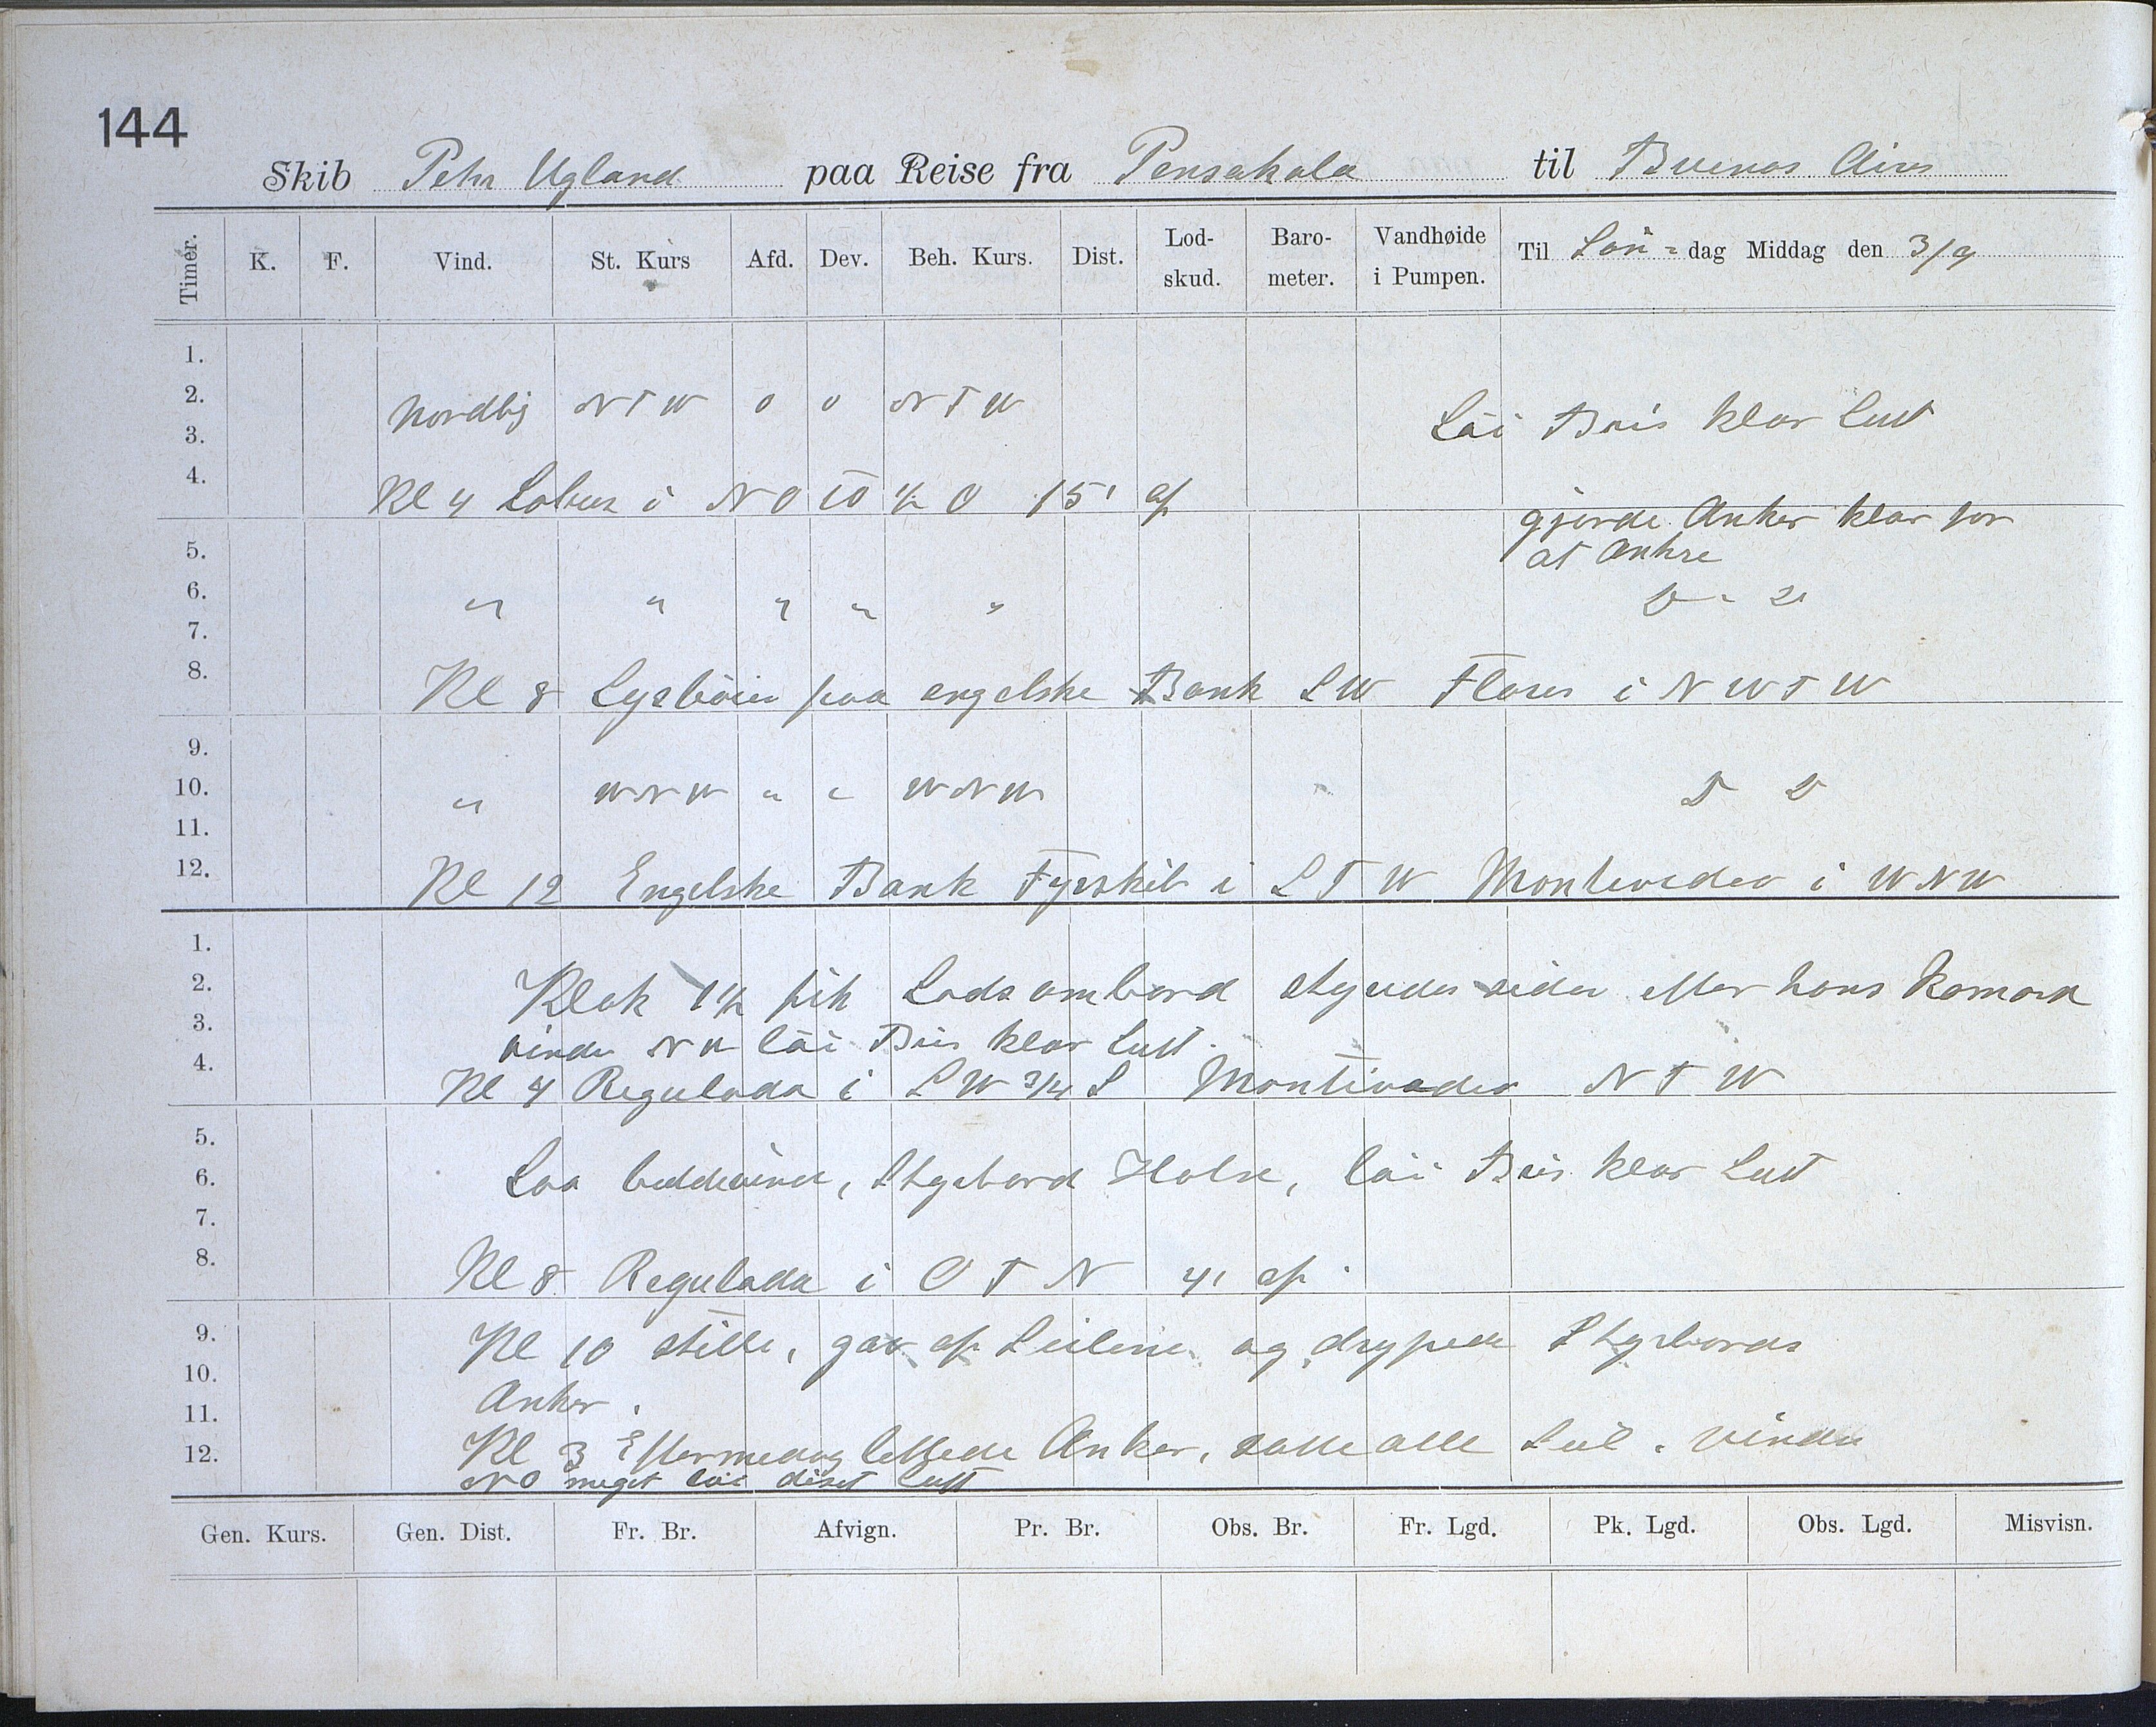 144
Skib Pehr Ugland paa Reise fra Pensakola til Buenos Aires
Timer. K. F. Vind. St. Kurs Afd. Dev. Beh. Kurs. Dist. Lod-skud. Baro-meter. Vandhøide i Pumpen. Til Søn = dag Middag den 3/9
1.
2. Nordlig NTW 0 0 NTW
3. Löi Bris klar Luft
4. Kl 4 Lobus i NOTO 1/2 O 15' af
gjorde Anker klar for
5. at ankre
6. " " " " "
7.
8. Kl 8 Lysböien paa engelske Bank SW Flores i NWTW
9.
10. " WNW " " WNW
11.
12. Kl 12 Engelske Bank Fyrskib i STW Montevideo i WNW
1.
2. Klok 1 1/2 fik Lods ombord styredes siden efter hans Komando
3. vinden NW löi Bris klar Luft.
4. Kl 4 Regulada i SW 3/4 S Montivedeo NTW
5.
6. Laa beddevind, Styrbord Halse, löi Bris klar Luft
7.
8. Kl 8 Regulada i OTN 4' af.
9. Kl 10 stille, gav op Seilene og droppede Styrbords
10. Anker.
11. Kl 3 Eftermedag lettede Anker, satte alle Seil. vinden
12. NO meget löi diset luft
Gen. Kurs. Gen. Dist. Fr. Br. Afvign. Pr. Br. Obs. Br. Fr. Lgd. Pk. Lgd. Obs. Lgd. Misvisn.